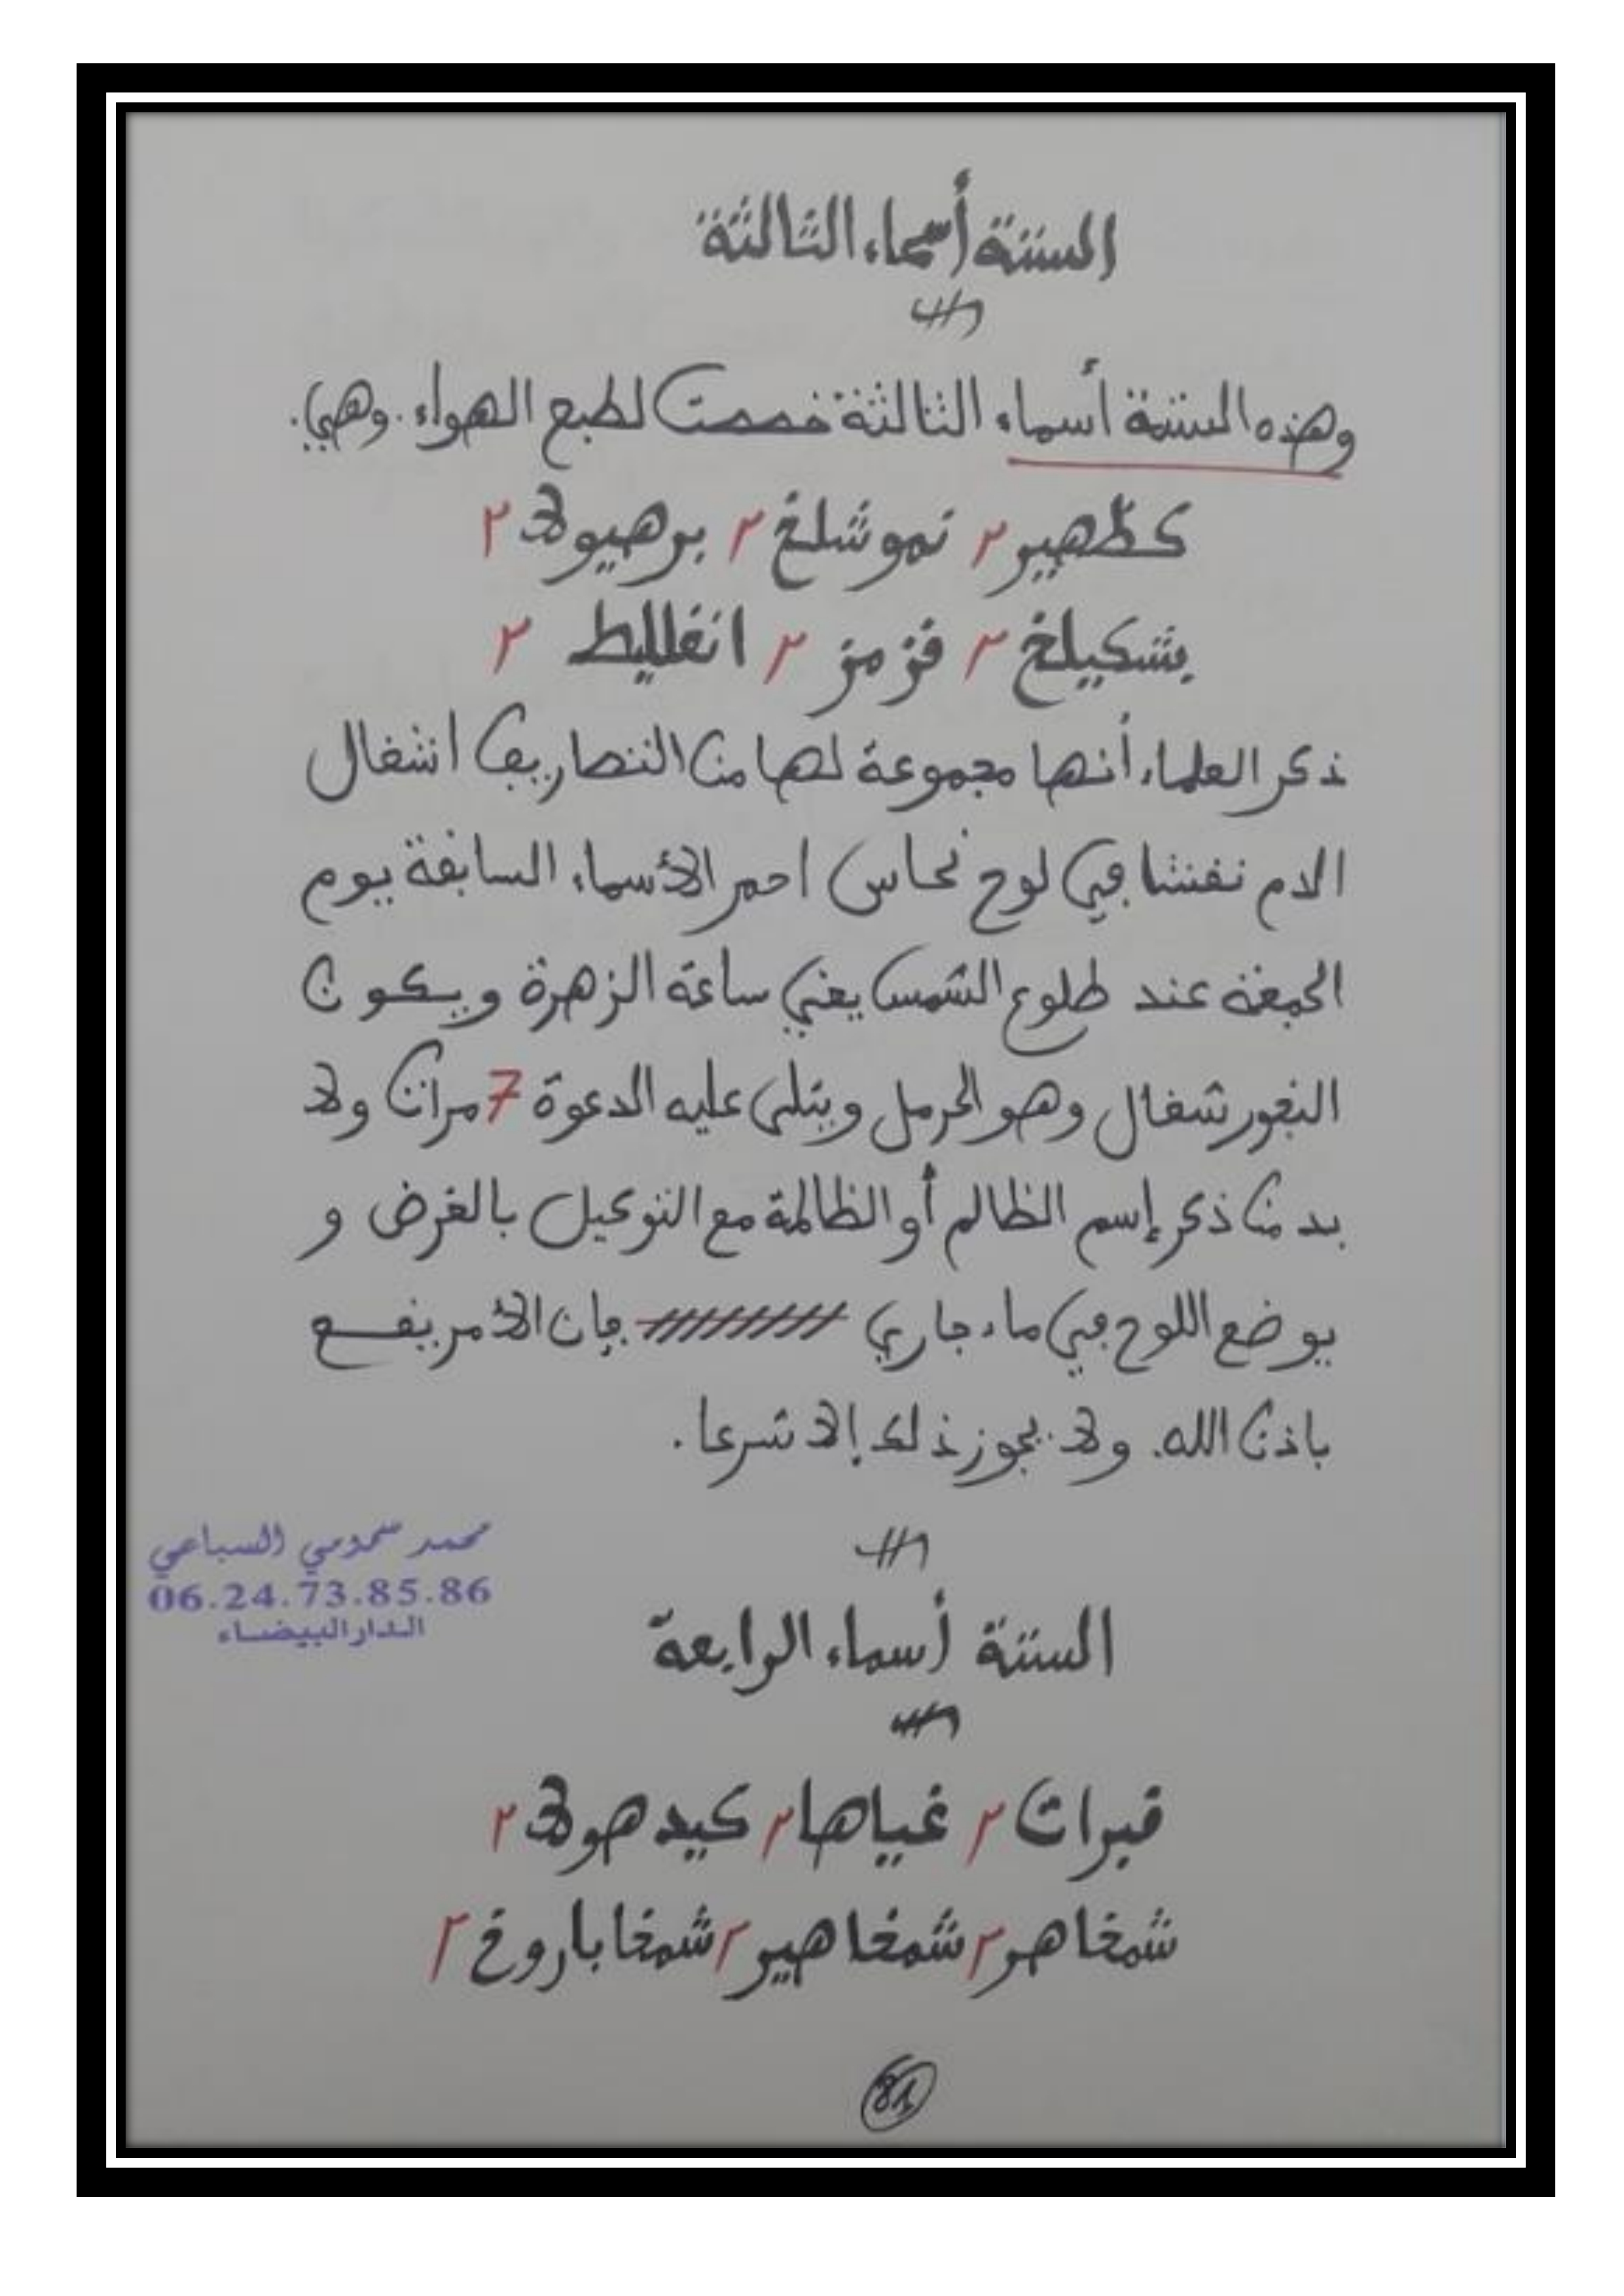 الستة أسماء الثالثة
وهذه الستة أسماء الثالثة خصصت لطبع الهواء. وهي.
كظهير ٢ نموشلخ ٢ برهيولا ٢
بشكيلخ ٢ قزمز ٢ انغلليط ٢
ذكر العلماء أنها مجموعة لها من التصاريف اشغال
الدم نقشا في لوح نحاس احمر الأسماء السابقة يوم
الجمعة عند طلوع الشمس يعني ساعة الزهرة ويكون
البخور شغال وهو الحرمل ويتلى عليه الدعوة 7 مرات ولا
بد من ذكر إسم الظالم أو الظالمة مع التوكيل بالغرض و
يوضع اللوح في ماء جاري فإن الأمر يقع
باذن الله. ولا يجوز ذلك إلا شرعا.
محمد سحومي السباعي
06.24.73.85.86
الدار البيضاء
الستة أسماء الرابعة
قبرات ٢ غياها ٢ كيدهولا ٢
شمخاهر ٢ شمخاهير ٢ شمخاباروخ ٢
81